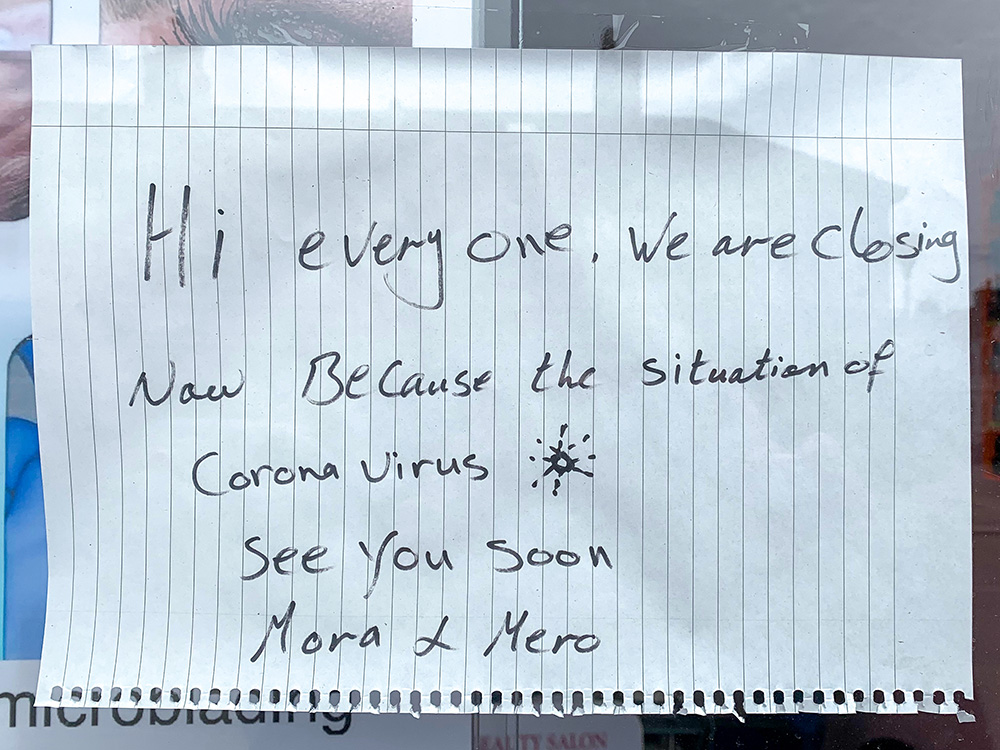 Hi every one. We are closing
Now Because the situation of
Corona virus
See you soon
Mora & Mero
microblading
BEAUTY SALON